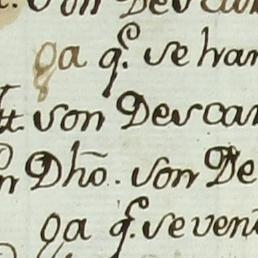 von Descan
ga q.e se han
tt. von Descan
n Dho. von De
ga q.e se ven